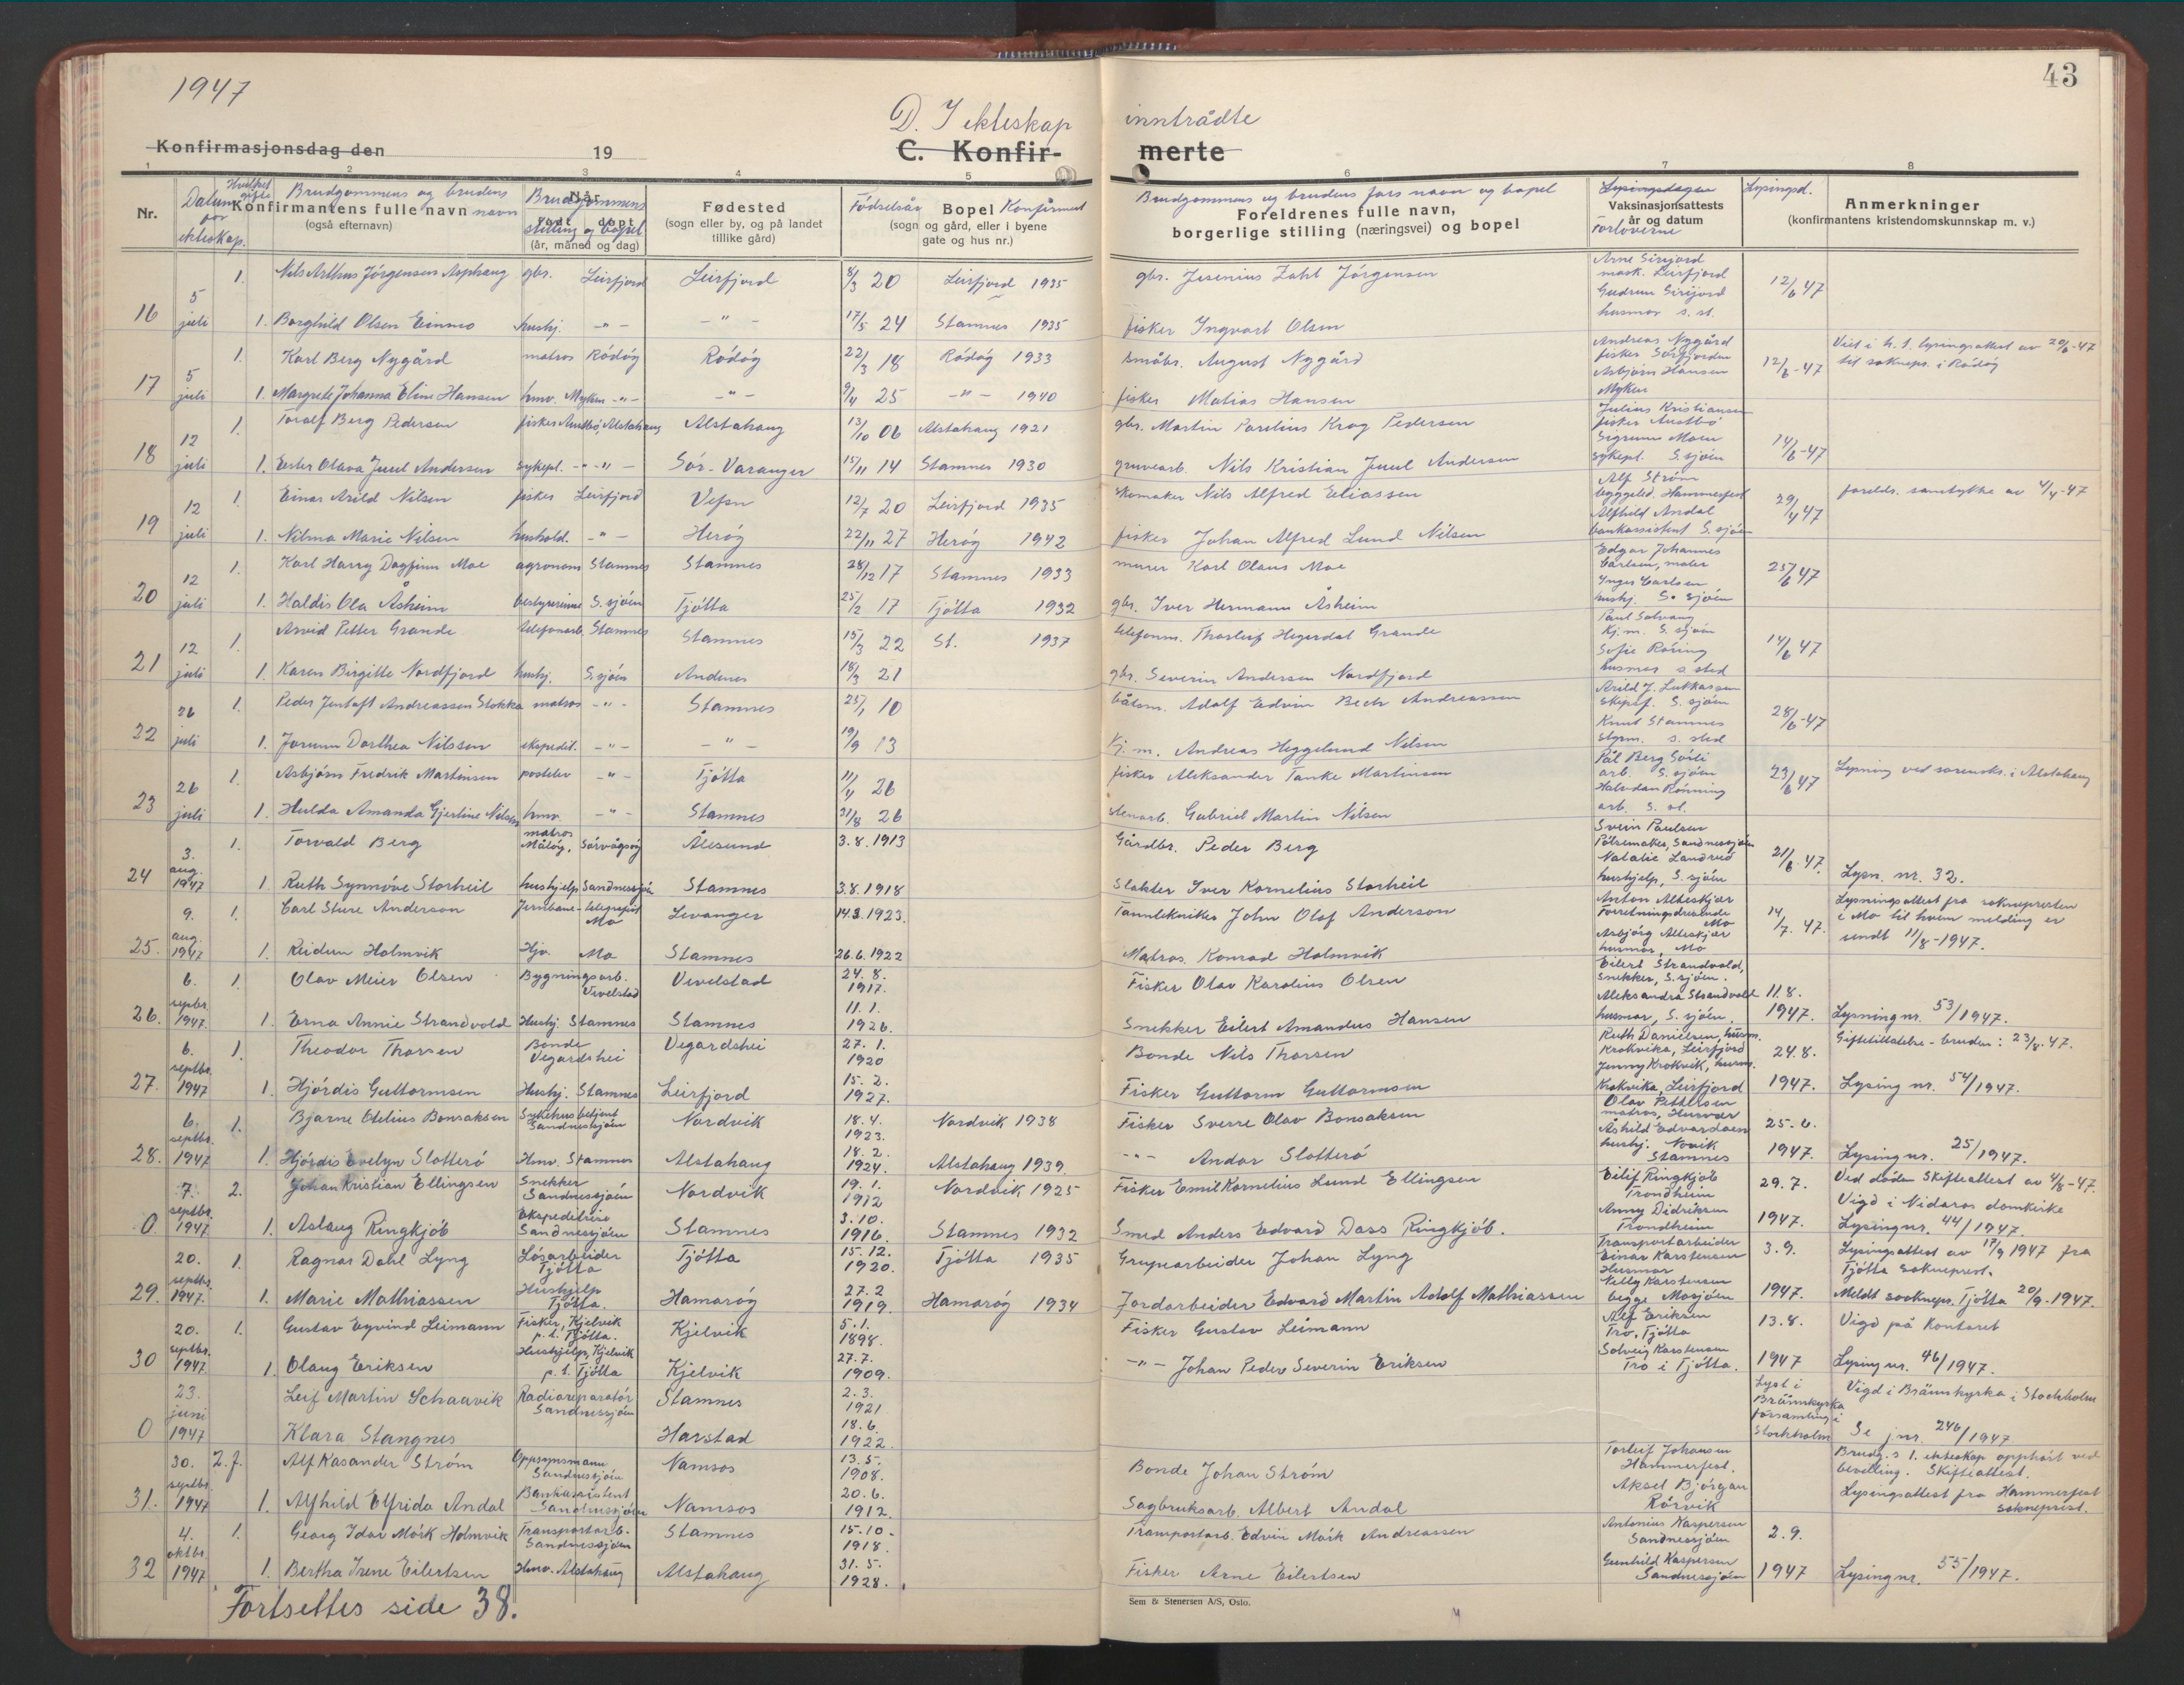 1947
43
D. I ekteskap inntrådte
Konfirmasjonsdag den 19
C. Konfirmerte
1 2 3 4 5 6 7 8
Nr.
Datum for ekteskap.
Hvilket gifte
Brudgommens og brudens navn
Konfirmantens fulle navn
(også efternavn)
Brudgommens stilling og bopel
Når
født døpt
(år, måned og dag)
Fødested
(sogn eller by, og på landet
tillike gård)
Fødselsår
Bopel Konfirmert
(sogn og gård, eller i byene
gate og hus nr.)
Brudgommens og brudens fars navn og bopel
Foreldrenes fulle navn,
borgerlige stilling (næringsvei) og bopel
Lysingsdagen
Vaksinasjonsattests
år og datum
Forloverne
Lysingsd.
Anmerkninger
(konfirmantens kristendomskunnskap m. v.)
1. Nils Arthur Jörgensen Asphaug gbr. Leirfjord Leirfjord 8/3 20 Leirfjord 1935 gbr. Jesenius Zahl Jörgensen Arne Sirijord mask. Leirfjord
16 5 juli 1. Borghild Olsen Einmo hushj. -"- -"- 17/5 24 Stamnes 1935 fisker Ingvart Olsen Gudrun Sirijord husmor s. st. 12/6 47
1. Karl Berg Nygård matros Rödöy Rödöy 22/3 18 Rödöy 1933 småbr. August Nygård Andreas Nygård fisker Sörfjorden Vist i h. t. lysingsattest av 20/6-47
17 5 juli 1. Margrete Johanna Eline Hansen hmv. Myken -"- -"- 9/4 25 -"- 1940 fisker Matias Hansen Asbjörn Hansen Myken 12/6-47 til sokneps. i Rödöy
1. Toralf Berg Pedersen fisker Austbö, Alstahaug Alstahaug 13/10 06 Alstahaug 1921 gbr. Martin Parelius Krog Pedersen Julius Kristiansen fisker Austbö
18 12 juli 1. Ester Olava Juul Andersen sykepl. -"-"- Sör-Varanger 15/11 14 Stamnes 1930 gruvearb. Nils Kristian Juul Andersen Sigrunn Moen sykepl. S.sjöen 14/6-47
1. Einar Arild Nilsen fisker Leirfjord Vefsn 12/7 20 Leirfjord 1935 skomaker Nils Alfred Eliassen Alf Ström byggeled. Hammerfest forelds. samtykke av 4/4-47
19 12 juli 1. Nilma Marie Nilsen hushold. -"- Heröy 22/11 27 Heröy 1942 fisker Johan Alfred Lund Nilsen Alfhild Andal bankassistent S.sjöen 29/4 47
1. Karl Harry Dagfinn Moe agronom Stamnes Stamnes 28/12 17 Stamnes 1933 murer Karl Olaus Moe Edgar Johannes Carlsen, maler
20 12 juli 1. Haldis Ola Åsheim bestyrerinne S.sjöen Tjötta 25/2 17 Tjötta 1932 gbr. Iver Hermann Åsheim Inger Carlsen hushj. S. sjöen 25/6 47
1. Arvid Petter Grande telefonarb. Stamnes Stamnes 15/3 22 St. 1937 telefonm. Thorleif Hegerdal Grande Paul Solvang Kj.m. S. sjöen
21 12 juli 1. Karen Birgitte Nordfjord hushj. S.sjöen Andenes 18/3 21 gbr. Severin Andersen Nordfjord Sofie Röring husmor s. sted 14/6 47
1. Peder Jentoft Andreassen Stokka matros -"- Stamnes 25/1 10 båtsm. Adolf Edvin Bech Andreassen Arild J. Lukkassen skipsf. S. sjöen
22 26 juli 1. Jorunn Dorthea Nilssen ekspedit. -"- -"- 19/9 13 Kj. m. Andreas Heggelund Nilsen Knut Stamnes styrm. s. sted 28/6-47
1. Asbjörn Fredrik Martinsen postelev -"- Tjötta 11/4 26 fisker Aleksander Tanke Martinsen Pål Berg Sörli arb. S. sjöen Lysning ved sorensk. i Alstahaug
23 26 juli 1. Hulda Amanda Gjertine Nilsen hmv. -"- Stamnes 31/8 26 stenarb. Gabriel Martin Nilsen Halvdan Rönning arb. s. st. 23/6 47
1. Torvald Berg matros Målöy, Sörvågsöy Ålesund 3.8.1913 Gårdbr. Peder Berg Svein Paulsen Pölsemaker, Sandnessjöen
24 3. aug. 1947 1. Ruth Synnöve Storheil hushjelp Sandnessjöen Stamnes 3.8.1918 Slakter Iver Kornelius Storheil Natalie Landrud hushjelp, S. sjöen 21/6-47. Lysn. nr. 32.
1. Carl Sture Anderson Jernbane-telegrafist Mo Levanger 14.3.1923. Tanntekniker John Olof Anderson Anton Alteskjær Forretningsdrivende Mo Lysningsattest fra soknepresten
25. 9. aug. 1947 1. Reidun Holmvik Hjv. Mo Stamnes 26.6.1922 Matros Konrad Holmvik Asbjörg Alteskjær husmor, Mo 14/7. 47. i Mo til hvem melding er sendt 11/8-1947.
1. Olav Meier Olsen Bygningsarb. Vevelstad Vevelstad 24.8. 1917. Fisker Olav Karolius Olsen Eilert Strandvold, Snekker, S.sjöen.
26. 6. septbr. 1947. 1. Erna Annie Strandvold Hushj. Stamnes Stamnes 11.1. 1926. Snekker Eilert Amandus Hansen Aleksandra Strandvold husmor, S. sjöen. 11.8. 1947. Lysning nr. 53/1947.
1. Theodor Thorsen Bonde Vegardshei Vegardshei 27.1. 1920 Bonde Nils Thorsen Ruth Danielsen, husm. Krokvika, Leirfjord Giftetillatelse - bruden: 23/8.47.
27. 6. septbr. 1947 1. Hjördis Guttormsen Hushj. Stamnes Leirfjord 15.2. 1927. Fisker Guttorm Guttormsen Jenny Krokvik, husm. Krokvika, Leirfjord 24.8. 1947. Lysing nr. 54/1947.
1. Bjarne Otelius Bonsaksen Sykehusbetjent Sandnessjöen Nordvik 18.4. 1923. Nordvik 1938 Fisker Sverre Olav Bonsaksen Olav Pettersen matros, Husvær
28. 6. septbr. 1947 1. Hjördis Evelyn Slotterö Hmv. Stamnes Alstahaug 18.2. 1924. Alstahaug 1939. -"- Andor Slotterö Åshild Edvardsen hushj. Novik Stamnes 25.6. 1947. Lysing nr. 25/1947.
2. Johan Kristian Ellingsen Snekker Sandnessjöen Nordvik 19.1. 1912 Nordvik 1925 Fisker Emil Kornelius Lund Ellingsen Eilif Ringkjöb Trondheim 29.7. Ved döden Skifteattest av 4/8-47.
0. 7. septbr. 1947 1. Aslaug Ringkjöb Ekspeditrise Sandnessjöen Stamnes 3.10. 1916. Stamnes 1932 Smed Anders Edvard Dass Ringkjöb. Anny Didriksen Trondheim 1947. Vigd i Nidaros domkirke Lysing nr. 44/1947.
1. Ragnar Dahl Lyng Lösarbeider Tjötta Tjötta 15.12. 1920. Tjötta 1935 Gruvearbeider Johan Lyng Transportarbeider Einar Karstensen 3.9. Lysingsattest av 17/9 1947 fra Tjötta sokneprest.
29. 20. septbr. 1947. 1. Marie Mathiassen Hushjelp Tjötta. Hamaröy 27.2 1919. Hamaröy 1934 Jordarbeider Edvard Martin Adolf Mathiassen Husmor Nelly Karstensen begge Mosjöen 1947. Meldt sockneps. Tjötta 20/9-1947.
1. Gustav Eyvind Leimann Fisker, Kjelvik p.t. Tjötta. Kjelvik 5.1. 1898. Fisker Gustav Leimann Alf Eriksen Tro, Tjötta 13.8. Vigd på Kontoret
30 20. septbr. 1947 1. Olaug Eriksen Hushjelp, Kjelvik p.t. Tjötta Kjelvik 27.7. 1909. -"- Johan Peder Severin Eriksen Solveig Karstensen Tro i Tjötta. 1947 Lysing nr. 46/1947.
Leif Martin Schaavik Radioreparatör Sandnessjöen Stamnes 2.3. 1921 Lyst i Brännkyrka Vigd i Brännkyrka i Stockholm
0 23. juni 1947 Klara Stangnes Harstad 18.6. 1922. församling i Stockholm Se jnr. 246/1947
2.f. Alf Kasander Ström Oppsynsmann Sandnessjöen Namsos 13.5. 1908. Bonde Johan Ström Torleif Johansen Hammerfest. Brudg.s 1. ekteskap opphört ved bevilling. Skifteattest.
31. 30. septbr. 1947 1. Alfhild Elfrida Andal Bankassistent Sandnessjöen Namsos 20.6. 1912. Sagbruksarb. Albert Andal Aksel Bjørgan Rörvik Lysingsattest fra Hammerfest sokneprest.
1. Georg Idar Mörk Holmvik Transportarb. Sandnessjöen Stamnes 15.10. 1918. Transportarb. Edvin Mörk Andreassen Antonius Kaspersen Sandnessjöen 2.9.
32 4. oktbr. 1947 1. Bertha Irene Eilertsen Hmv. Alstahaug Alstahaug 31.5. 1928. Fisker Arne Eilertsen Gunhild Kaspersen Sandnessjöen 1947 Lysing nr. 55/1947.
Fortsettes side 38.
Sem & Stenersen A/S, Oslo.